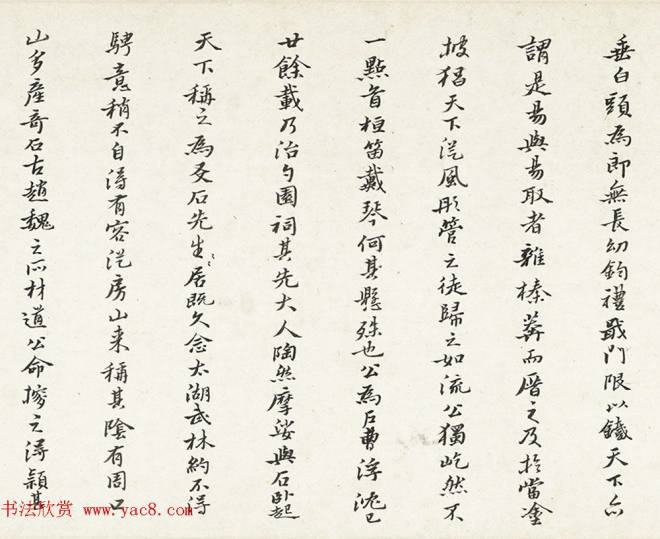 垂白頭為郎無長幼鈞禮戢門限以鐵天下亦
謂是易與易取者雜榛莽而厝之及於當塗
披猖天下從風彤管之徒歸之如流公獨屹然不
一點首桓笛戴琴何其懸殊也公為石曹浮沈已
廿餘載乃治勺園祠其先大人陶然摩娑與石卧起
天下稱之為友石先生先生居既久念太湖武林約不得
騁意稍不自得有客從房山来稱其陰有周口
山多產奇石古趙魏之所材道公命搜之得穎其
书法欣赏 www.yac8.com